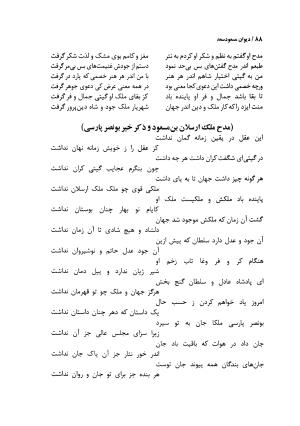 ۸۸ / دیوان مسعودسعد
مدح او گفتم به نظم و شکر او کردم به نثر
مغز و کامم بوی مشک و لذت شکر گرفت
طبعم اندر مدح گفتن‌های بس بی‌حد نمود
دستم از جودش غنیمت‌های بس بی‌مر گرفت
من به گیتی اختیار شاهم اندر هر هنر
با من اندر هر هنر خصمی که یارد در گرفت
ورچه خصمی داشت این دعوی کجا معنی بود
در همه معنی عرض کی دعوی جوهر گرفت
تا بقا باشد جمال و فر او پاینده باد
کز بقای ملک او گیتی جمال و فر گرفت
منت ایزد را که کار ملک و دین اندر جهان
شهریار ملک جود و شاه دین‌پرور گرفت
(مدح ملک ارسلان بن‌مسعود و ذکر خیر بونصر پارسی)
این عقل در یقین زمانه گمان نداشت
کز عقل راز خویش زمانه نهان نداشت
در گیتی‌ای شگفت کران داشت هر چه داشت
چون بنگرم عجایب گیتی کران نداشت
هر گونه چیز داشت جهان تا به پای داشت
ملکی قوی چو ملک ملک ارسلان نداشت
پاینده باد ملکش و ملکیست ملک او
کایام نو بهار چنان بوستان نداشت
گشت آن زمان که ملکش موجود شد جهان
دلشاد و هیچ شادی تا آن زمان نداشت
آن جود و عدل دارد سلطان که پیش ازین
آن جود عدل حاتم و نوشیروان نداشت
هنگام کر و فر وغا تاب زخم او
شیر ژیان ندارد و پیل دمان نداشت
ای پادشاه عادل و سلطان گنج بخش
هرگز جهان و ملک چو تو قهرمان نداشت
امروز یاد خواهم کردن ز حسب حال
یک داستان که دهر چنان داستان نداشت
بونصر پارسی ملکا جان به تو سپرد
زیرا سزای مجلس عالی جز آن نداشت
جان داد در هوات که باقیت باد جان
اندر خور نثار جز آن پاک جان نداشت
جان‌های بندگان همه پیوند جان توست
هر بنده جز برای تو جان و روان نداشت